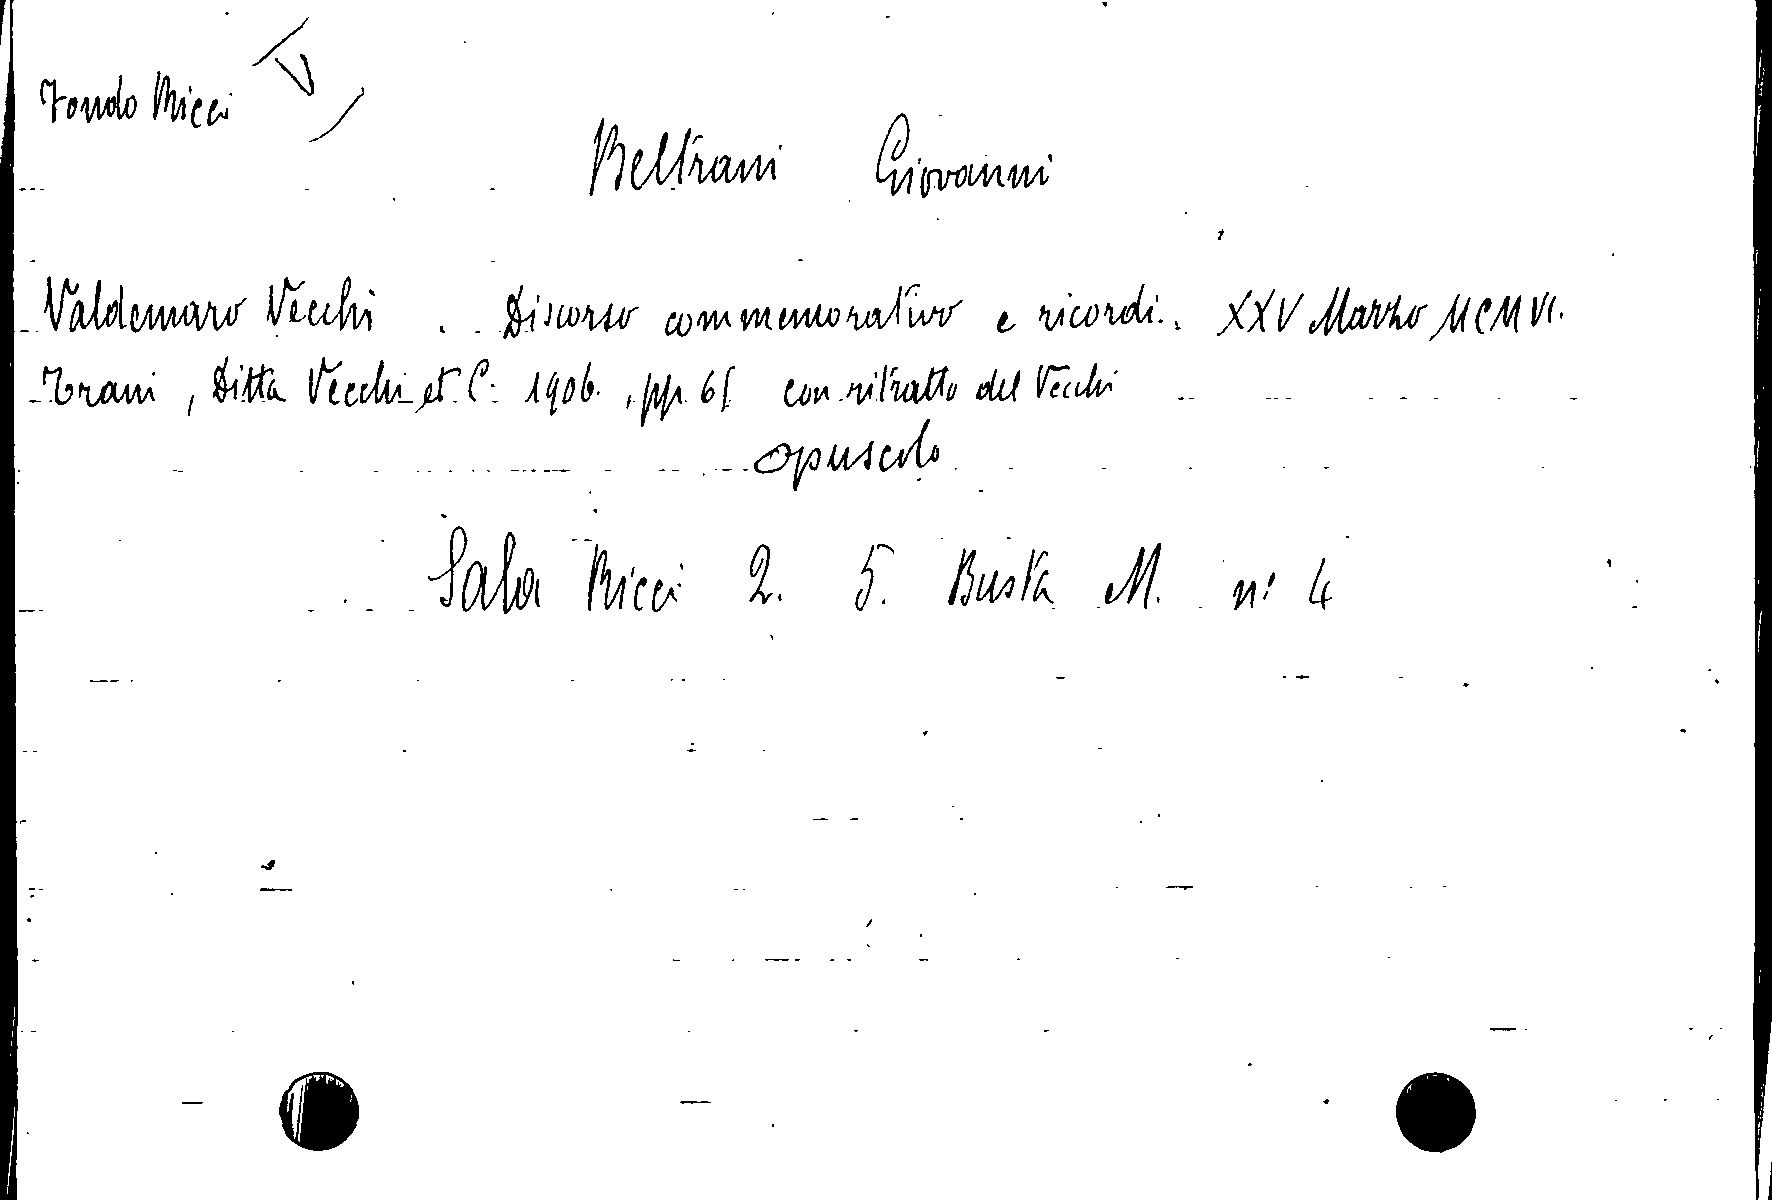 Fondo Ricci V
Beltrani Giovanni
Valdemaro Vecchi . Discorso commemorativo e ricordi. XXV Marzo MCMVI.
Trani, Ditta Vecchi et C. 1906., pp. con ritratto del Vecchi
opuscolo
Sala Ricci 2. 5. Busta M. n: 4